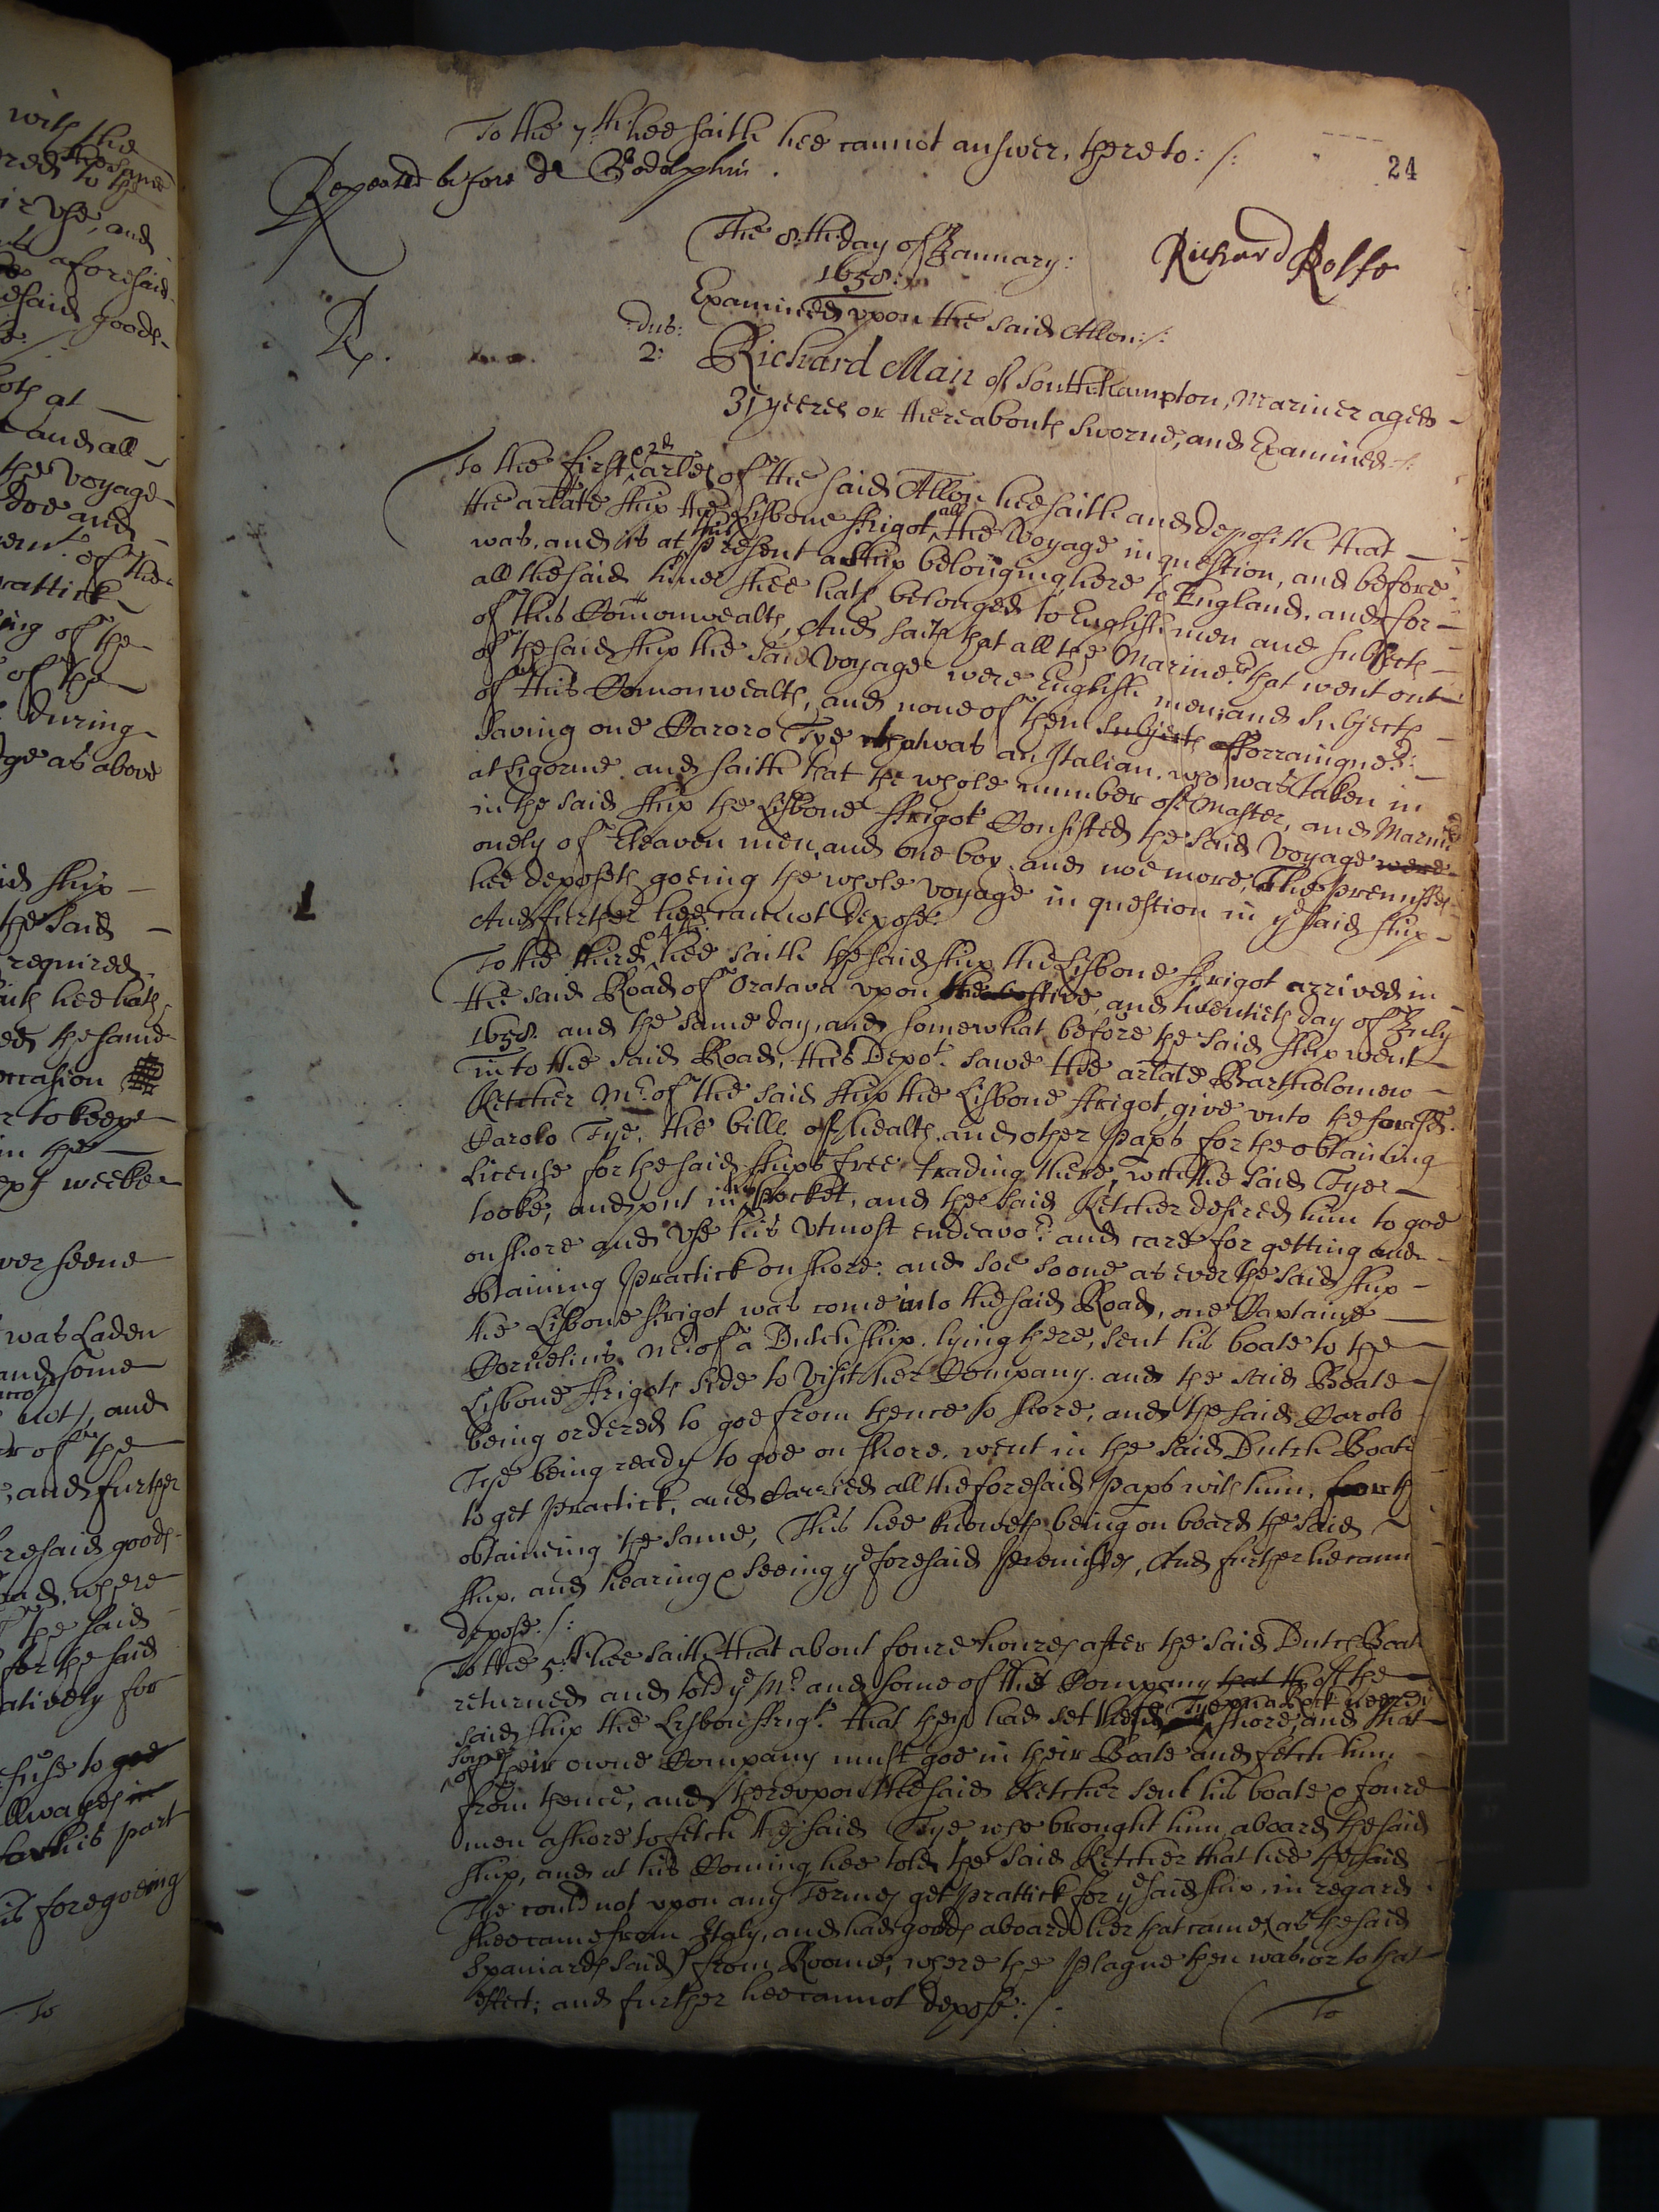 with the
the same
red to the
ir use, and
aforesaid
esaid goods
both at
and all
the voyage
doe and
of the
rattick
ing of the
of the
during
ge as above
id ship
the said
required
hee hath
ed the same
occasion
r to keepe
in the
weeke
ver seene
was Laden
and some
not, and
of the
and further
resaid goods
where
the said
for the said
atively for
fuse to goe
allwayes in
for his part
is foregoeing
To
24
To the 7th hee saith hee cannot answer, thereto:/:
Repeated before dr Godolphin.
Richard Rolfe
The 8:th day of January:
1658:
Examined upon the said Allon:/:
Rp.
dus:
2:
Richard Man of Southhampton, Mariner aged
31 yeeres or thereabouts sworne, and Examined:/:
To the first, & 2d arles of the said Allon hee saith and deposeth that
the arlate ship the Lisbone ffrigot all the Voyage in question, and before
was, and is at this present a ship belonging here to England, and for
all the said time shee hath belonged to English men and subjects
of this Comonwealth, And saith that all the Mariners that went out
of the said ship the said Voyage were English men, and subjects
of this Comonwealth, and none of them subjects of fforraigners:
saving one Caroro Tye that was an Italian, who was taken in
at Ligorne. and saith that the whole number of Master, and Marinrs
in the said ship the Lisbone ffrigot Consisted the said Voyage were
onely of Eleaven men, and one boy, and noe more, The premisses
hee deposeth goeing the whole voyage in question in ye said ship
And further hee cannot depose:
To the third & 4th: hee saith the said ship the Lisbone ffrigot arrived in
the said Road of Oratava upon the five, and twentieth day of July
1658. and the same day, and somewhat before the said ship went
in to the said Road, this Depot. sawe the arlate Bartholomew
Ketcher Mr. of the said ship the Lisbone ffrigot, give unto the foresd.
Carolo Tye, the bille of health, and other Paprs for the obtaining
License for the said ships free trading there, wch the said Tye
tooke, and put in his pocket, and the said Ketcher desired him to goe
on shore and use his utmost endeavor. and care for getting and
obtaining Practick on shore. and soe soone as ever the said ship
the Lisbone ffrigot was come into the said Road, one Captaine
Cornelius Mr. of a Dutch ship lying there, sent his boate to the
Lisbone ffrigots side to visit her Company. and the said Boate
being ordered to goe from thence to shore, and the said Carolo
Tye being ready to goe on shore, went in the said Dutch Boate
to get Practick, and Carried all the foresaid Paprs with him, for th
obtaineing the same, This hee knoweth being on board the said
ship, and hearing & seeing ye foresaid premisses, And further he cann
depose:/:
To the 5:th hee saith that about foure houres after the said Dutch Boat
returned and told ye Mr. and some of the Company that the of the
said ship the Lisbon ffrigt. that they had set the sd Tye upon a Rock neere ye shore, and that
some of their owne Company must goe in their Boate and fetch him
from thence, and thereupon the said Ketcher sent his boate & foure
men ashore to fetch the said Tye who brought him aboard the said
ship, and at his Coming hee told the said Ketcher that hee the said
Tye could not upon any Termes get prattick for ye said ship, in regard
shee came from Italy, and had goods aboard her that came (as the said
Spaniards said) from Roome, where the Plague then was, or to that
effect; and further hee cannot depose:/.
To